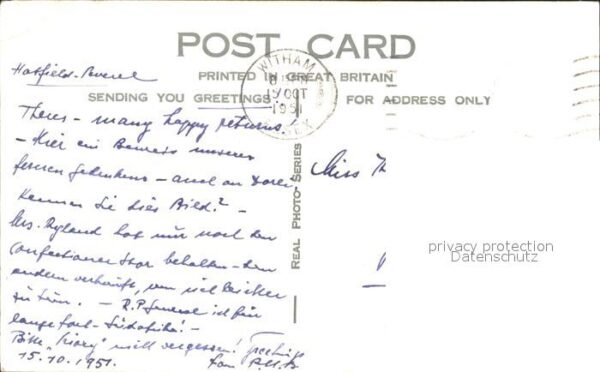 POST CARD
WITHAM
15 OCT
1951
ESSEX
Hatfield-Peverel
PRINTED IN GREAT BRITAIN
SENDING YOU GREETINGS
FOR ADDRESS ONLY
REAL PHOTO-SERIES
Theres - many happy returns!
- Hier ein Beweis unseres
fernen Gedenkens - auch an
Kennen Sie dies Bild? -
Mrs. Ryland hat nur noch den
Confectioner Shop behalten - den
andern verkauft, um viel
zu tun. - R.P. General ist für
lange fort - Südafrika! -
Bitte "Priory" nicht vergessen! Greetings
15.10.1951. from
Miss
privacy protection
Datenschutz